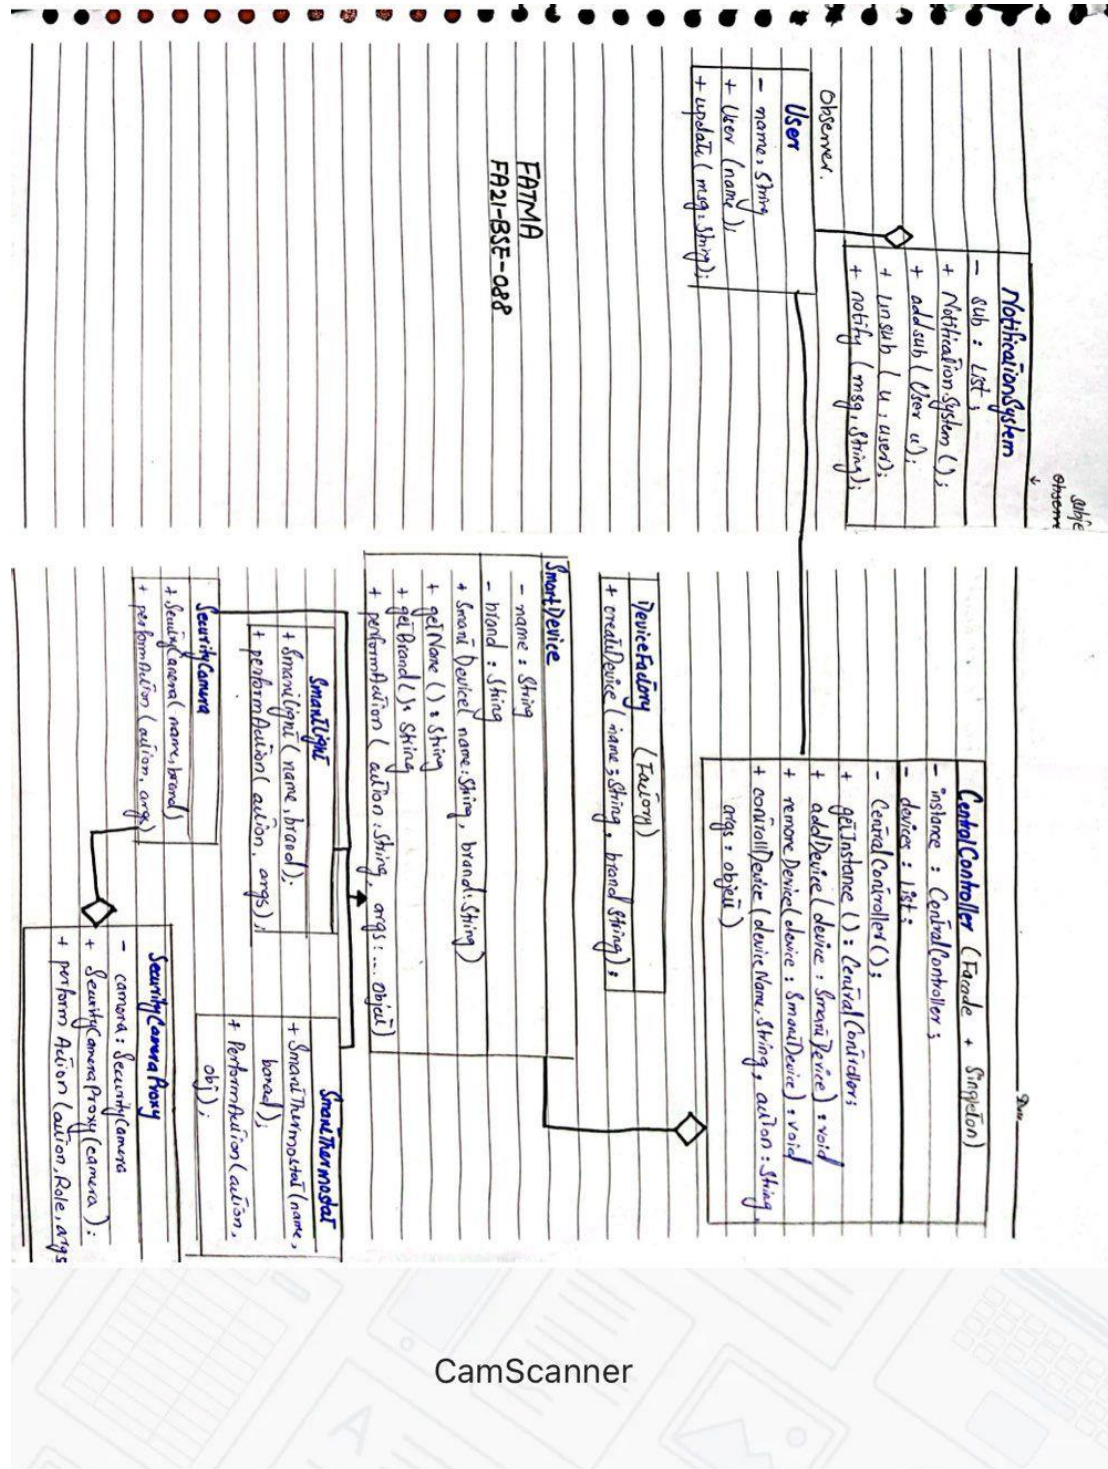 Subje
Observe
NotificationSystem
- sub : List ;
+ Notification System ( ) ;
+ addsub ( User u ) ;
+ unsub ( u , user ) ;
+ notify ( msg, String ) ;
Observer.
User
- name: String
+ User (name) ;
+ update ( msg: String) ;
FATMA
FA21-BSE-088
Date
CentralController (Facade + Singleton)
- instance : CentralController ;
- devices : List ;
- CentralController ( ) ;
+ getInstance ( ) : CentralController ;
+ addDevice ( device : SmartDevice ) : void
+ remoreDevice( device : SmartDevice ) : void
+ controllDevice ( deviceName, String , action : String ,
args : object )
DeviceFactory (Factory)
+ createDevice ( name : String , brand String ) ;
SmartDevice
- name : String
- brand : String
+ Smart Device( name: String , brand: String )
+ getName ( ) : String
+ getBrand ( ) : String
+ performAction ( action: String, args: ... Object )
SmartLight
+ SmartLight ( name , brand ) ;
+ performAction ( action , args ) ;
SmartThermostat
+ SmartThermostat (name,
borad) ;
+ PerformAction ( action,
obj ) ;
SecurityCamera
+ SecurityCamera( name, brand )
+ performAction ( action, args )
SecurityCameraProxy
- camera : SecurityCamera
+ SecurityCameraProxy ( camera ) ;
+ perform Action ( action , Role , args
CamScanner